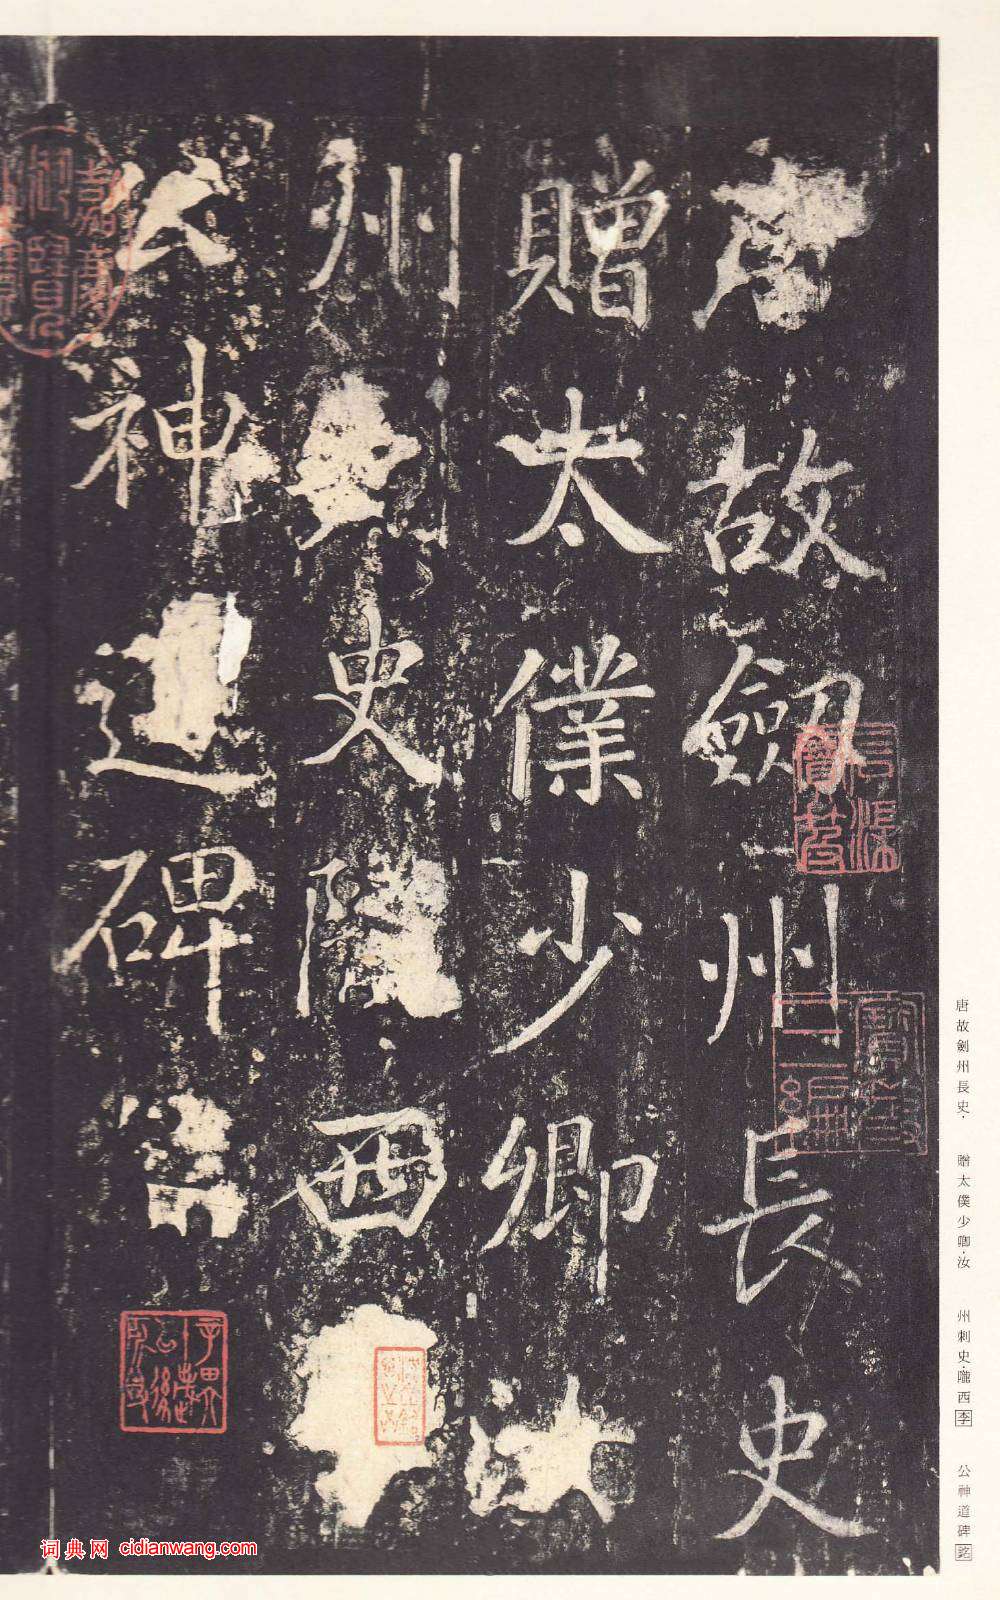 唐故劍州長史
贈太僕少卿汝
州刺史隴西
公神道碑銘
唐故劍州長史·
贈太僕少卿·汝
州刺史·隴西李
公神道碑銘
词典网 cidianwang.com